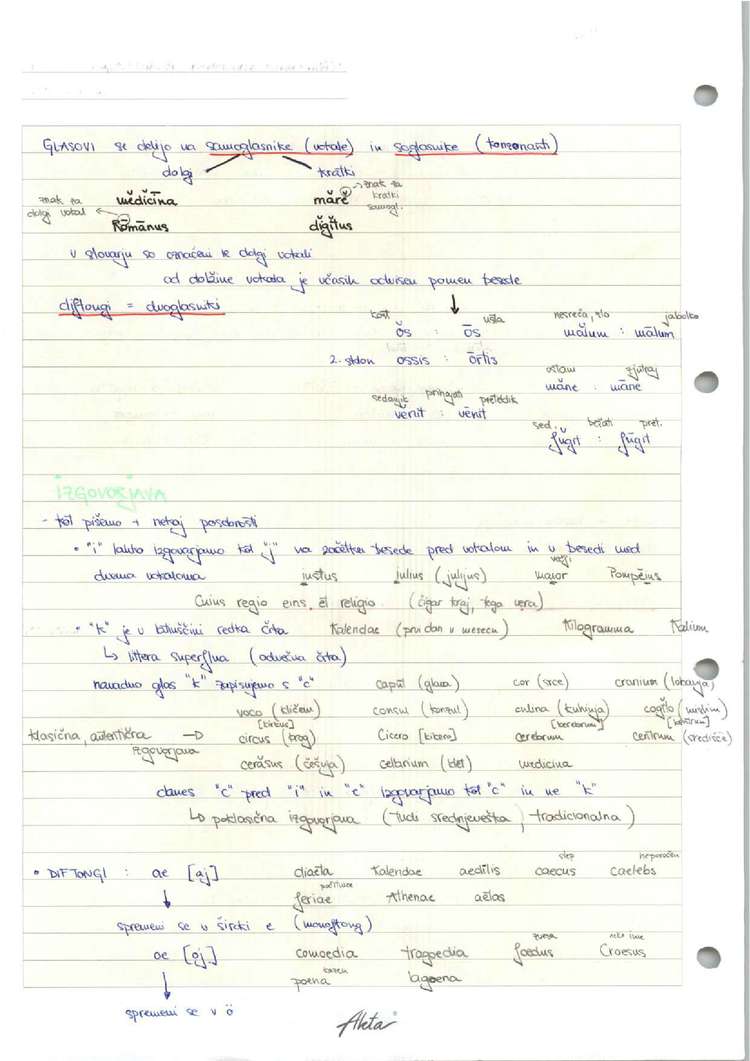 GLASOVI se delijo na samoglasnike (vokale) in soglasnike (konzonanti)
dolgi kratki
znak za dolgi vokal
mĕdicīna
Rōmānus
mărĕ
dĭgĭtus
→ znak za kratki samogl.
v slovarju so označeni le dolgi vokali
od dolžine vokala je včasih odvisen pomen besede
diftongi = dvoglasniki
kost usta nesreča, zlo jabolko
ŏs : ōs mălum : mālum
2. sklon ossis : ōrtis
ostani zjutraj
măne : māne
sedanjik prihajati preteklik
vĕnit : vēnit
sed. bežati pret.
fŭgit : fūgit
IZGOVORJAVA
- kot pišemo + nekaj posebnosti
• "i" lahko izgovarjamo kot "j" na začetku besede pred vokalom in v besedi med
večji
dvema vokaloma iustus Iulius (julijus) maior Pompēius
Cuius regio eins, et religio. (čigar kraj, tega vera)
• "k" je v latinščini redka črka Kalendae (prvi dan v mesecu) Kilogramma Kalium
↳ littera superflua (odvečna črka)
navadno glas "k" zapisujemo s "c" caput (glava) cor (srce) cranium (lobanja)
voco (kličem) consul (konzul) culina (kuhinja) cogito (mislim)
[kirkus] [kerebrum] [kentrum]
klasična, avtentična izgovorjava → circus (krog) Cicero [kikero] cerebrum centrum (središče)
cerăsus (češnja) cellarium (klet) medicina
danes "c" pred "i" in "e" izgovarjamo kot "c" in ne "k"
↳ poklasična izgovorjava (tudi srednjeveška, tradicionalna)
slep neporočen
• DIFTONGI : ae [aj] diaeta Kalendae aedilis caecus caelebs
počitnice
feriae Athenae aetas
spremeni se v široki e (monoftong)
zveza neko ime
oe [oj] comoedia tragoedia foedus Croesus
kazen
poena lagoena
spremeni se v ö
Akta